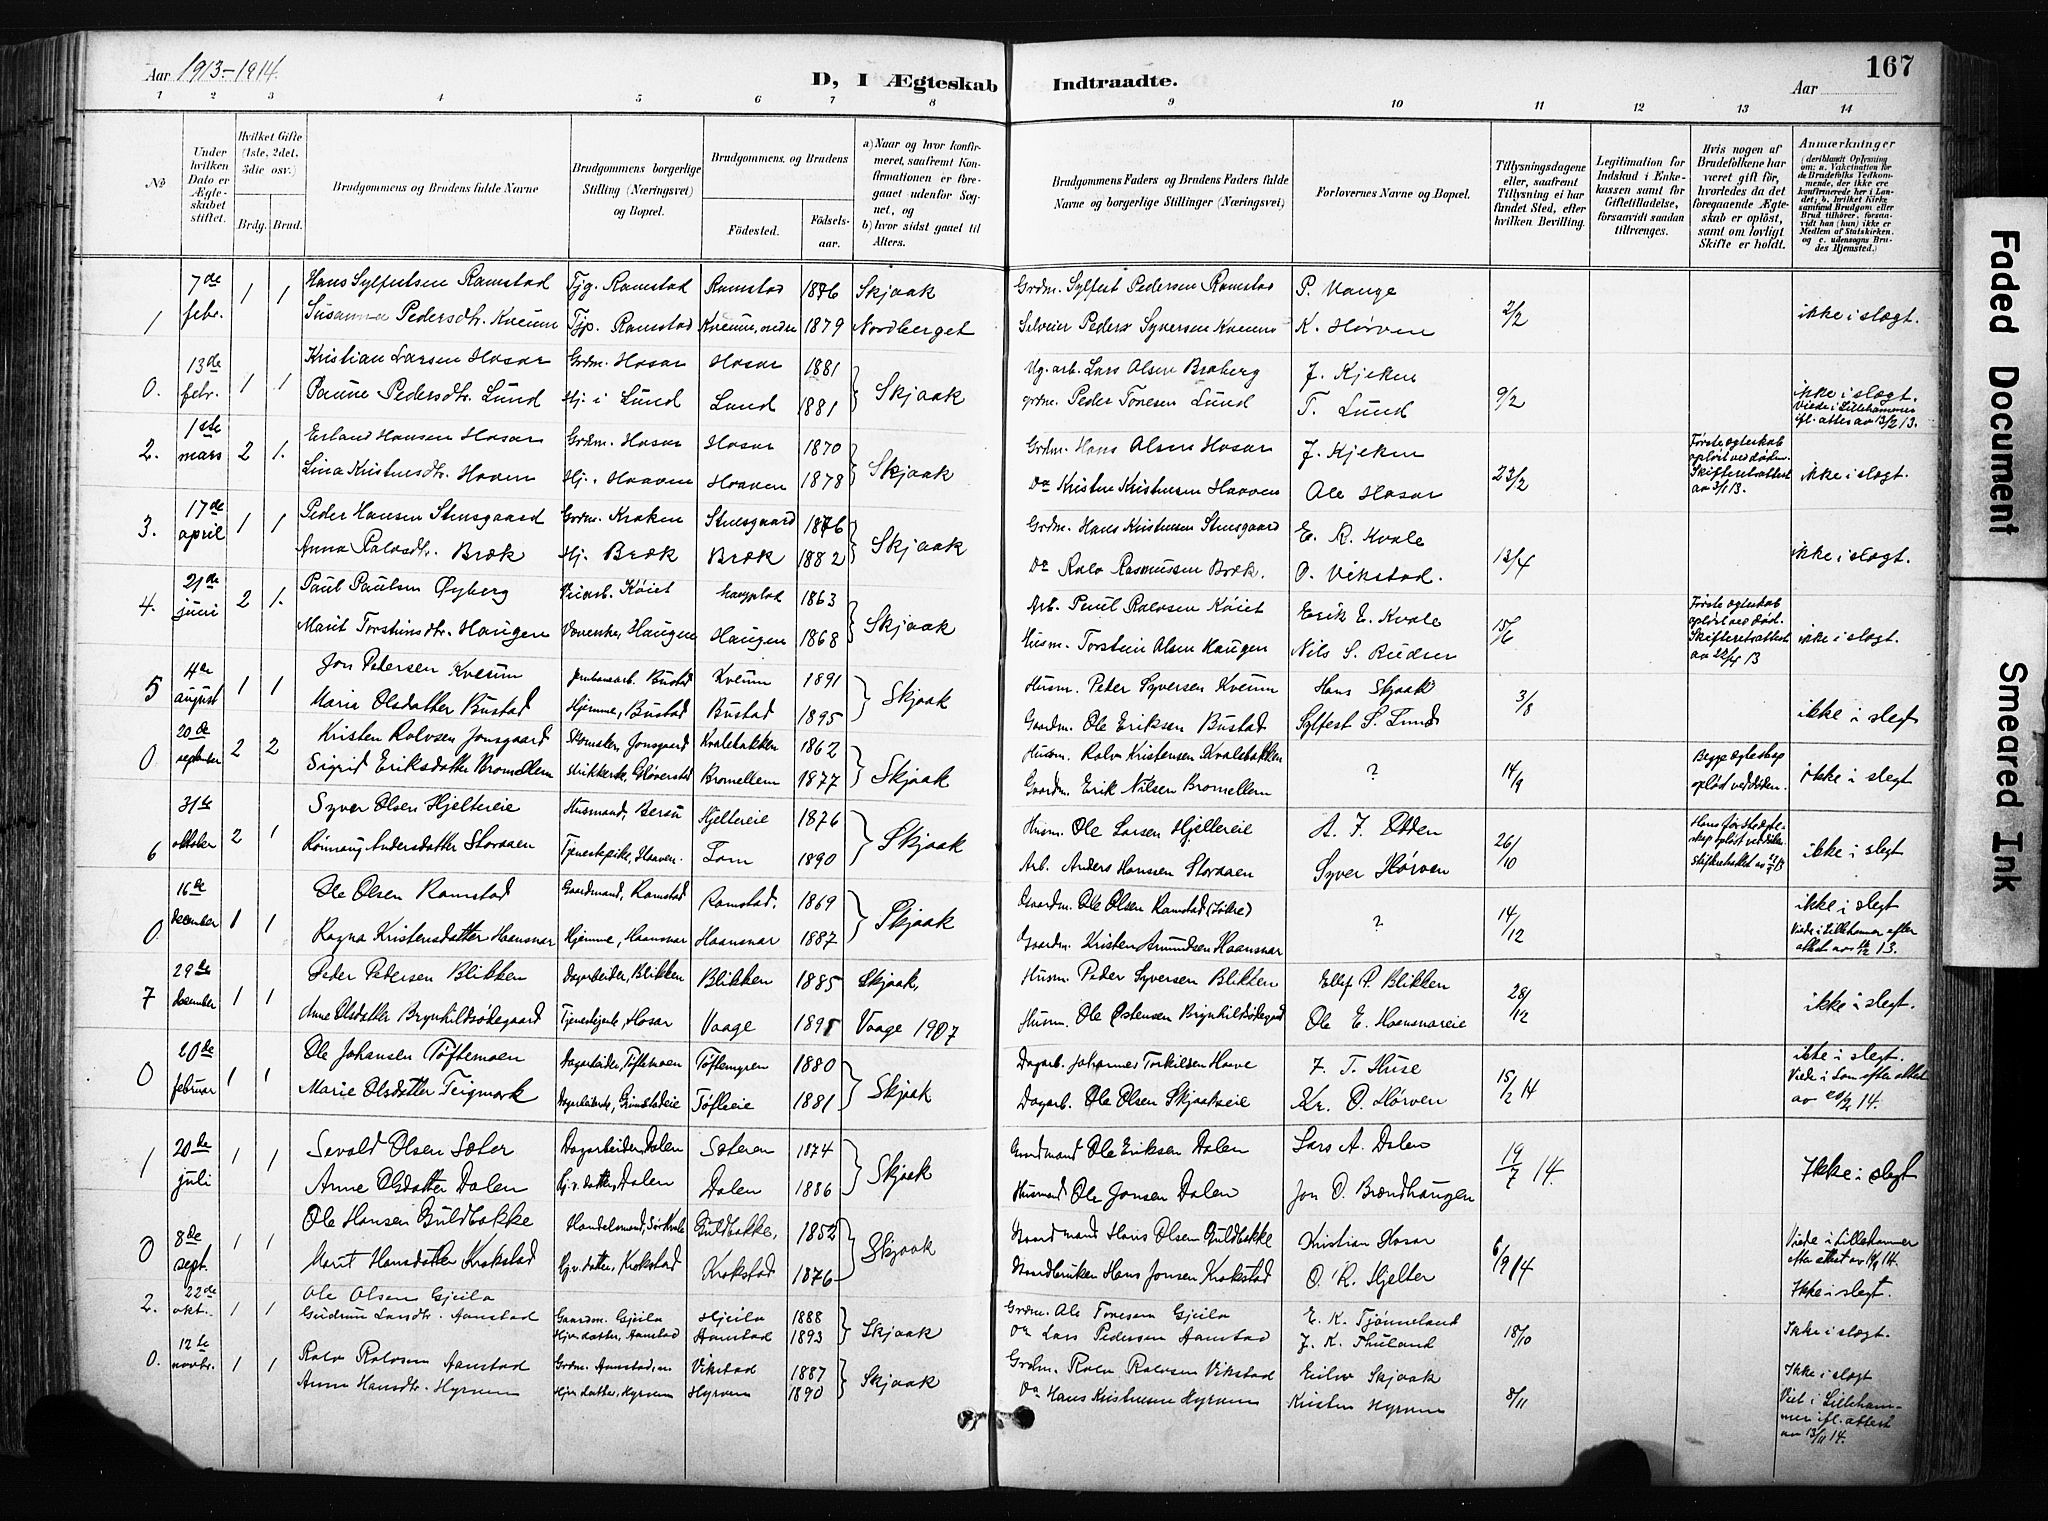 Aar 1913-1914.
D, I Ægteskab Indtraadte.
Aar
167
1 2 3 4 5 6 7 8 9 10 11 12 13 14
No
Under hvilken Dato er Ægteskabet stiftet.
Hvilket Gifte (1ste, 2det, 3die osv.)
Brdg. Brud.
Brudgommens og Brudens fulde Navne
Brudgommens borgerlige Stilling (Næringsvei) og Bopæl.
Brudgommens og Brudens
Födested. Födselsaar.
a) Naar og hvor konfirmeret, saafremt Konfirmationen er foregaaet udenfor Sognet, og
b) hvor sidst gaaet til Alters.
Brudgommens Faders og Brudens Faders fulde Navne og borgerlige Stillinger (Næringsvei)
Forlovernes Navne og Bopæl.
Tillysningsdagene eller, saafremt Tillysning ei har fundet Sted, efter hvilken Bevilling.
Legitimation for Indskud i Enkekassen samt for Giftetilladelse, forsaavidt saadan tiltrænges.
Hvis nogen af Brudefolkene har været gift för, hvorledes da det foregaaende Ægteskab er oplöst, samt om lovligt Skifte er holdt.
Anmærkninger
(deriblandt Oplysning om: a. Vakcination for de Brudefolks Vedkommende, der ikke ere konfirmerede her i Landet; b. hvilket Kirkesamfund Brudgom eller Brud tilhörer, forsaavidt han (hun) ikke er Medlem af Statskirken. og c. udensogns Brudes Hjemsted.)
1 7de febr. 1 1 Hans Sylfestsen Ramstad Tjg. Ramstad Ramstad 1876 Skjaak Grdm. Sylfest Pedersen Ramstad P. Vange 2/2 ikke i slægt.
Susanna Pedersdtr. Kveum Tjp. Ramstad Kveum, nedre 1879 Nordberget Selveier Peder Syversen Kveum K. Hørven
0. 13de febr. 1 1 Kristian Larsen Hosar Grdm. Hosar Hosar 1881 Skjaak Lars Olsen Braberg J. Kjeken 9/2 ikke i slægt.
Paune Pedersdtr. Lund Hj. i Lund Lund 1881 grdm. Peder Tonesen Lund T. Lund Viede i Lillehammer ifl. attest av 13/2 13.
2. 1ste mars 2 1. Erland Hansen Hosar Grdm. Hosar Hosar 1870 Skjaak Grdm. Hans Olsen Hosar J. Kjeken 23/2 Første ægteskab opløst ved døden. Skifteretsattest av 3/1 13. ikke i slægt.
Lina Kristensdtr. Haaven Hj. Haaven Haaven 1878 Do Kristen Kristensen Haaven Ole Hosar
3. 17de april 1 1 Peder Hansen Stensgaard Grdm. Kraken Stensgaard 1876 Skjaak Grdm. Hans Kristensen Stensgaard E. R. Kvale 13/4 ikke i slægt.
Anna Rolvsdtr. Bræk Hj. Bræk Bræk 1882 Do Rolv Rasmussen Bræk. O. Vikstad.
4. 21de juni 2 1. Paul Paulsen Øyberg Veiarb. Køiet 1863 Skjaak Arb. Paul Rolvsen Køiet Erik E. Kvale 15/6 Første ægteskab opløst ved død. Skifteretsattest av 22/4 13 ikke i slægt.
Marit Torstensdtr. Haugen Væverske, Haugen Haugen 1868 Husm. Torstein Olsen Haugen Nils S. Rudser
5 4de august 1 1 Jon Petersen Kveum Bustad Kveum 1891 Skjaak Husm. Peter Syversen Kveum Hans Skjaak 3/8 ikke i slegt
Marie Olsdatter Bustad Hjemme, Bustad Bustad 1895 Gaardm. Ole Eriksen Bustad Sylfest S. Lund
0 20de september 2 2 Kristen Rolvsen Jonsgaard Jonsgaard Kvalebakken 1862 Skjaak Husm. Rolv Kristensen Kvalebakken ? 14/9 Begge ægteskap opløst ved døden. ikke i slegt
Sigrid Eriksdatter Bromellem Gloverstad Bromellem 1877 Gaardm. Erik Nilsen Bromellem
6 31te oktober 2 1 Syver Olsen Hjeltereie Husmand, Bersu Hjeltereie 1876 Skjaak Husm. Ole Larsen Hjeltereie A. J. Odden 26/10 Hans første ægteskap opløst ved døden ikke i slegt
Rønnaug Andersdatter Storaaen Tjenestepike, Haaven. Lom 1890 Arb. Anders Hanssen Storaaen Syver Hørven
0. 16de december 1 1 Ole Olsen Ramstad Gaardmand, Ramstad Ramstad. 1869 Skjaak Gaardm. Ole Olsen Ramstad ? 14/12 ikke i slegt
Ragna Kristensdatter Haansnar Hjemme, Haansnar Haansnar 1887 Gaardm. Kristen Amundsen Haansnar Viede i Lillehamer efter attest av 13.
7 29de december 1 1 Peder Pedersen Blikken Dagarbeider, Blikken Blikken 1885 Skjaak, Husm. Peder Syversen Blikken Ellef P. Blikken 28/12 ikke i slegt.
Anne Olsdatter Brynhildsødegaard Tjenestejente, Hosar Vaage 1895 Vaage 1907 Husm. Ole Østensen Brynhildsødegaard Ole E. Haansnareie
0 20de februar 1 1 Ole Johansen Tøftemoen Dagarbeider, Tøftemoen Tøftemyren 1880 Skjaak Dagarb. Johannes Torkildsen Howe J. T. Huse 15/2 14 ikke i slegt.
Marie Olsdatter Teigmark Grimstadeie Tøfteeie 1881 Dagarb. Ole Olsen Skjaakseie Kr. O. Hørven Viede i Lom efter attest av 20/2 14.
1 20de juli 1 1 Sevald Olsen Sæter Dagarbeider, Dalen Sæteren 1874 Skjaak Gaardmand Ole Eriksen Dalen Lars A. Dalen 19/7 14. Ikke i slegt
Anne Olsdatter Dalen Gj.v. datter, Dalen Dalen 1886 Husmand Ole Jonsen Dalen Jon O. Brændhaugen
0 8de sept. 1 1 Ole Hansen Guldbakke Handelsmand, Sør Kvale Guldbakke, 1852 Skjaak Gaardmand Hans Olsen Guldbakke Kristian Hosar 6/9 14 Viede i Lillehamer efter attest av 14.
Marit Hansdatter Krokstad Gj.v. datter, Krokstad Krokstad 1876 Gaardbruker Hans Jonsen Krokstad O. R. Hjelter
2. 22de okt. 1 1 Ole Olsen Gjeilo Gaardm. Gjeilo Gjeilo 1888 Skjaak Grdm. Ole Tonesen Gjeilo E. K. Tjønneland 18/10 Ikke i slegt.
Gudrun Larsdtr. Aamstad Hjv. datter, Aamstad Aamstad 1893 Do Lars Pedersen Aamstad J. K. Thuland Ikke i slægt.
0. 12te novbr. 1 1 Rolv Rolvsen Aamstad Grdm. Aamstad Vikstad 1887 Skjaak Grdm. Rolv Rolvsen Vikstad Eilev Skjaak 8/11 Ikke i slægt
Anna Hansdtr. Hyrvum Hjv. datter, Hyrvum Hyrvum 1890 Do Hans Kristensen Hyrvum Kristen Hyrvum Viet i Lillehammer ifl. attest av 13/11 14.
Faded Document
Smeared Ink